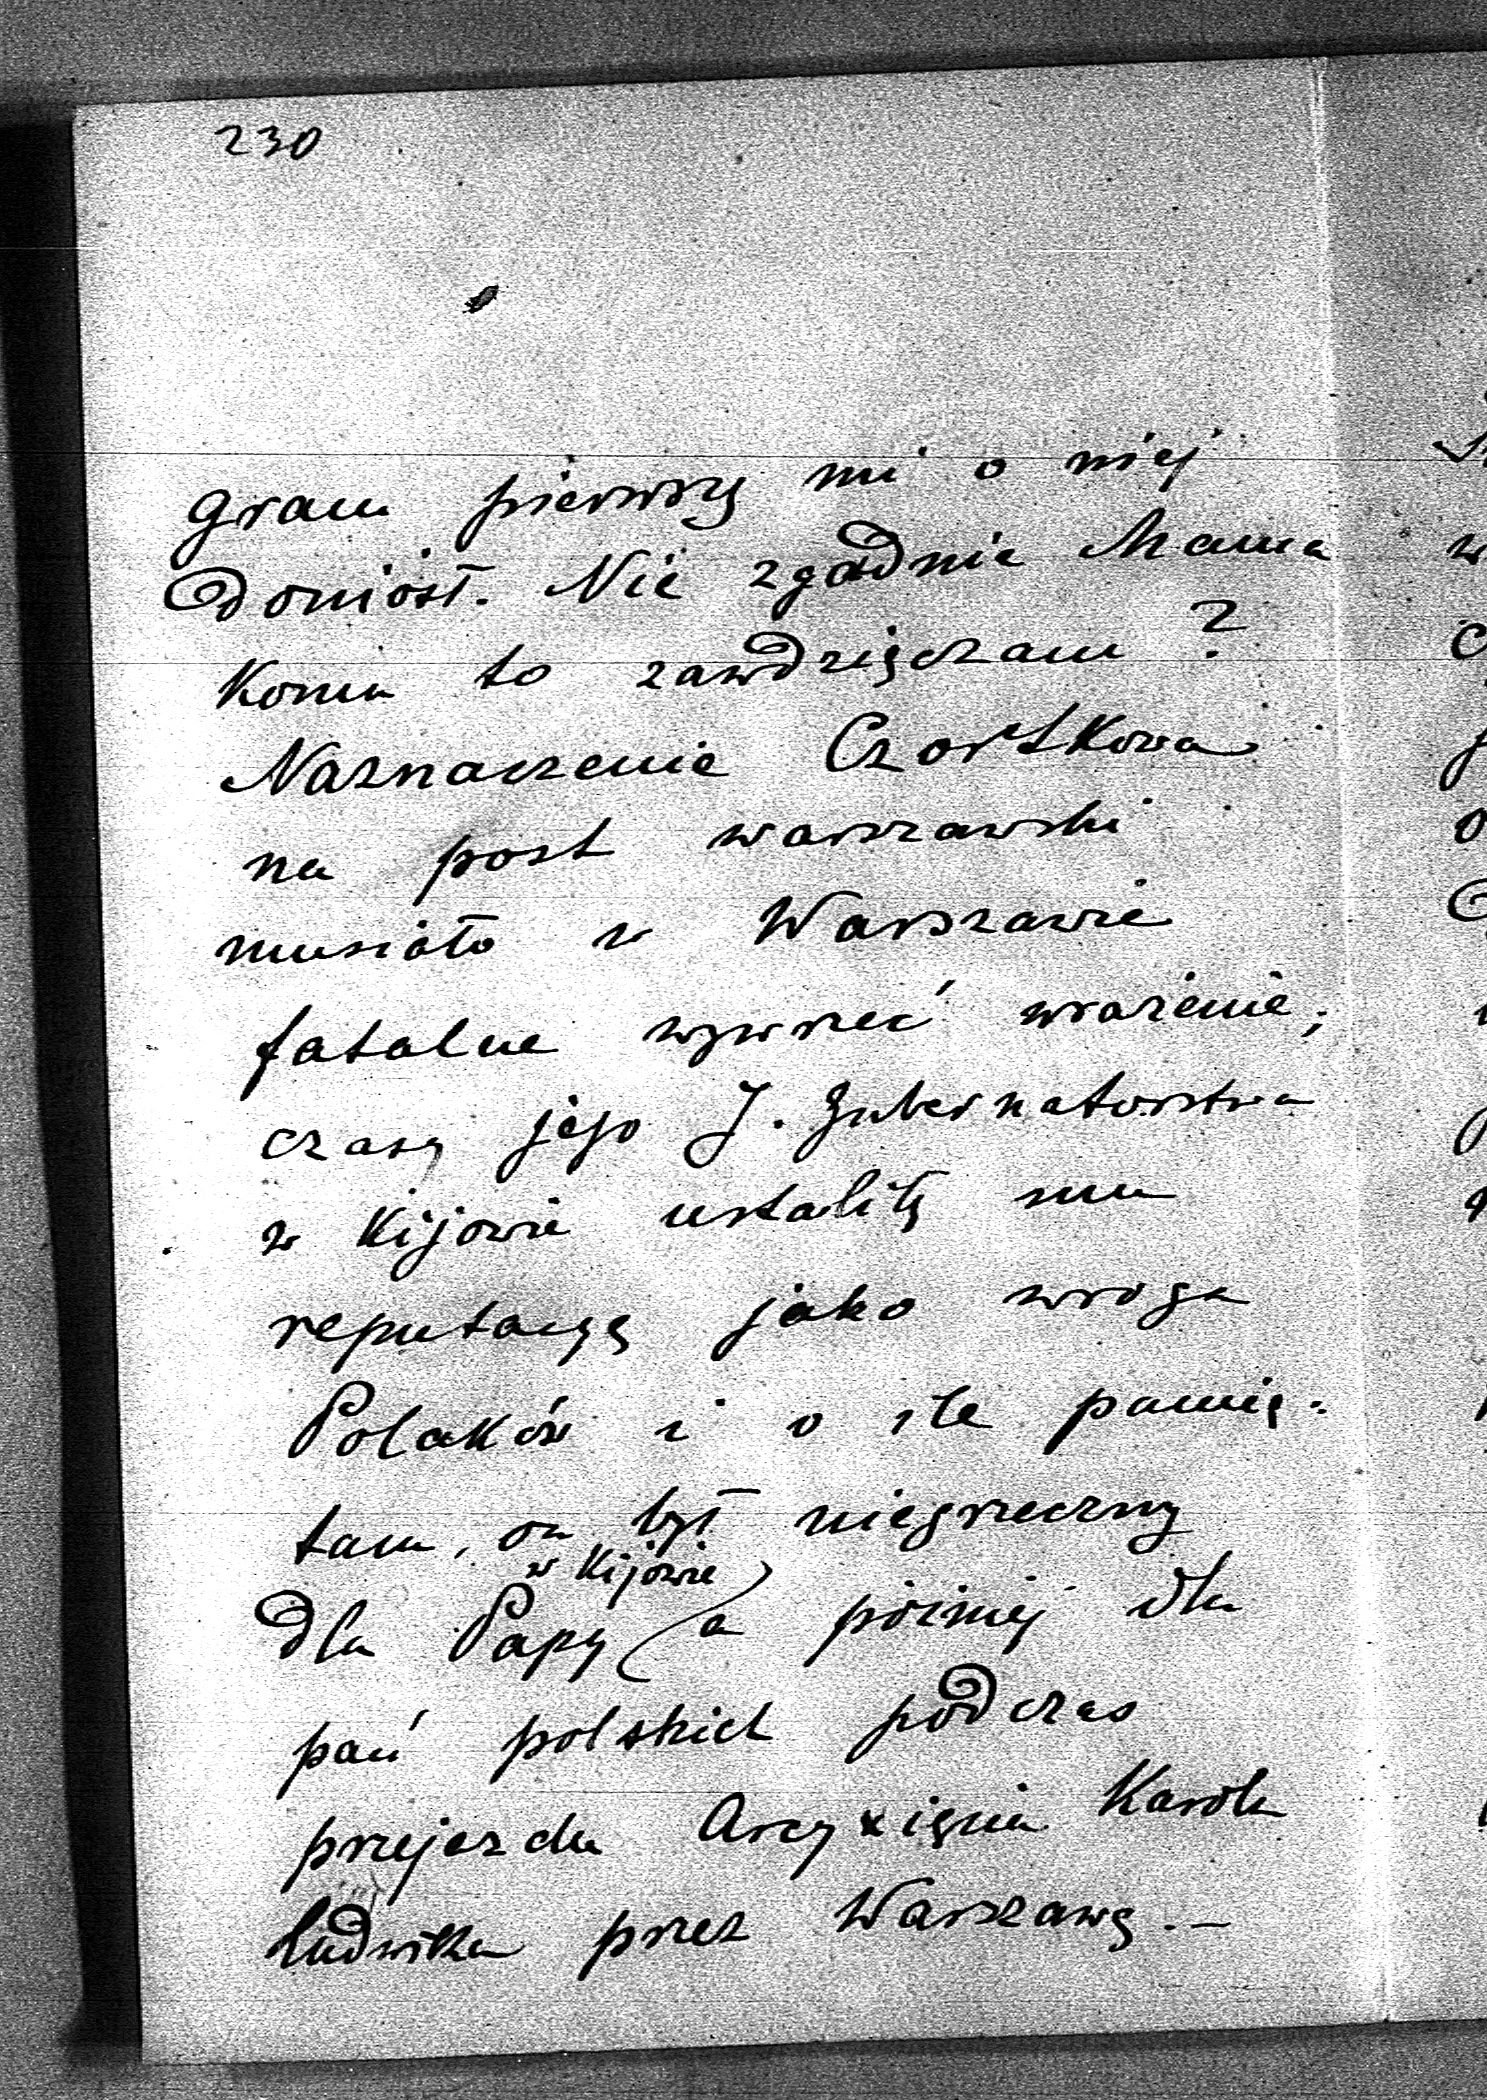 230
gram pierwszy mi o niej
doniósł. Nie zgadnie Mama
komu to zawdzięczam?
Naznaczenie Czortkowa
na post warszawski
musiało w Warszawie
fatalne wywrzeć wrażenie;
czasy jego J. Gubernatorstwa
w Kijowie ustaliły mu
reputacyę jako wroga
Polaków i o ile pamię-
tam, on był niegrzeczny
w Kijowie
dla Papy a później dla
pań polskich podczas
przejazdu Arcyxięcia Karola
Ludwika przez Warszawę. —